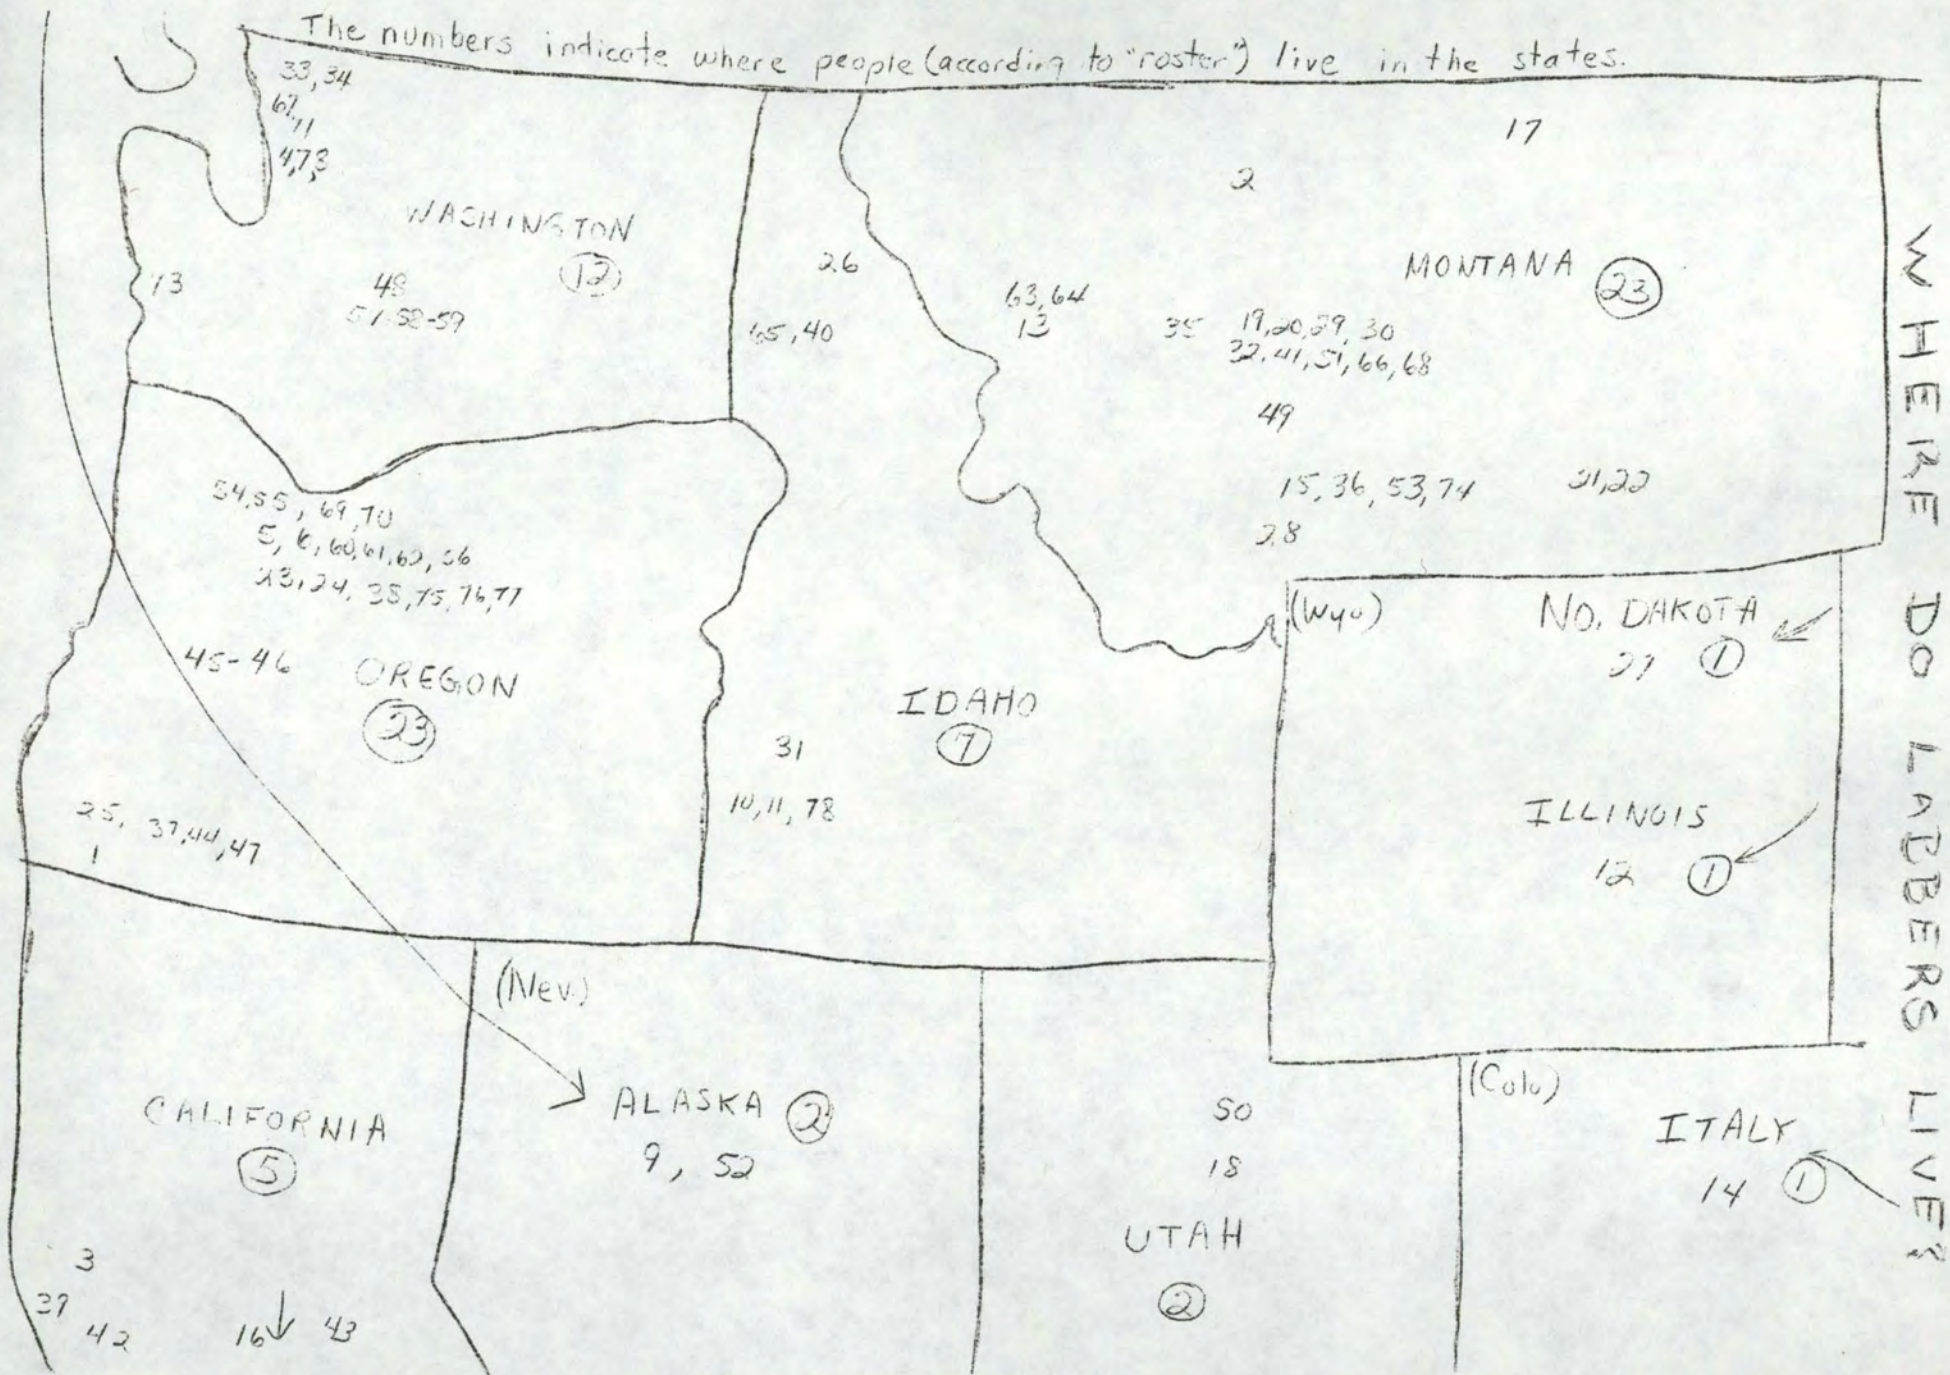 The numbers indicate where people (according to "roster") live in the states.
33, 34
67, 71
4, 7, 8
WASHINGTON
12
73
48
57-58-59
26
65, 40
17
2
MONTANA
23
63, 64
13
35
19, 20, 29, 30
32, 41, 51, 66, 68
49
15, 36, 53, 74
21, 22
28
54, 55, 69, 70
5, 6, 60, 61, 62, 56
23, 24, 38, 75, 76, 77
45-46
OREGON
23
25, 37, 44, 47
1
IDAHO
7
31
10, 11, 78
(Wyo)
NO. DAKOTA
27 1
ILLINOIS
12 1
(Nev.)
ALASKA 2
9, 52
CALIFORNIA
5
3
39
42
16 43
50
18
UTAH
2
(Colo)
ITALY
14 1
WHERE DO LABBERS LIVE?